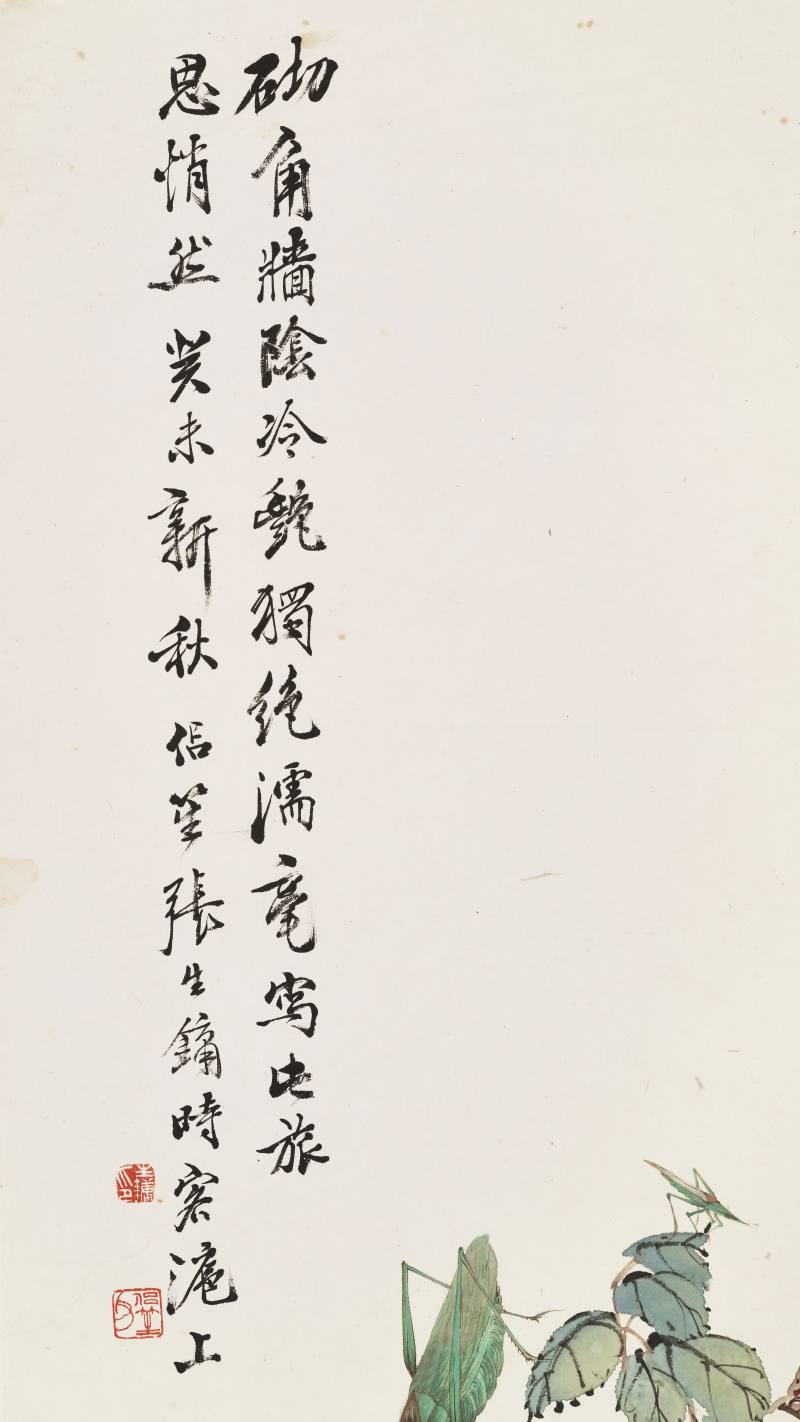 砌角牆陰冷艷獨絕濡毫寫此旅
思悄然癸未新秋侶笙張生鏞時客滬上